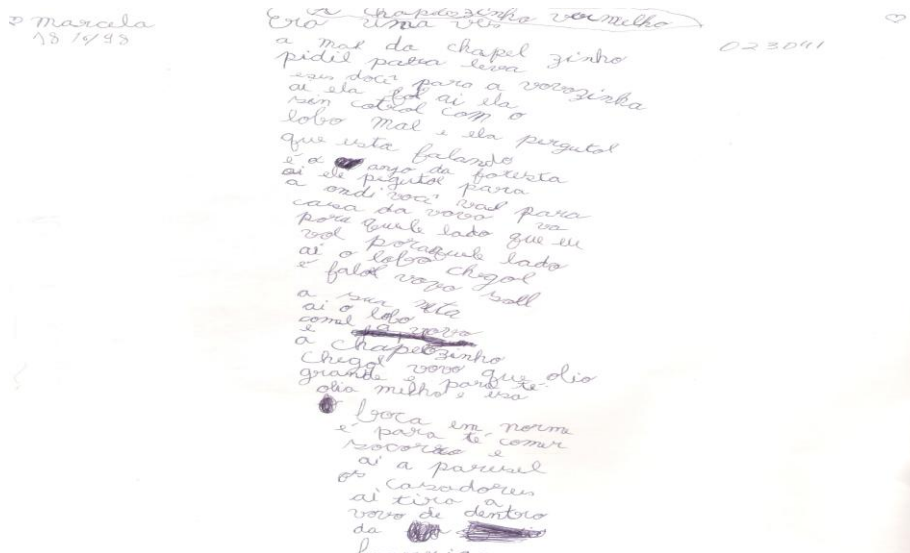 A chapeozinho vermelho
marcela
18/6/98
Era uma ves
023041
a mal da chapel zinho
pidil para leva
eses doci para a vovozinha
ai ela fol ai ela
sin cotrol com o
lobo mal e ela pergutol
que esta falando
é o anjo da foresta
ai ele pigutol para
a ondi voci val para
casa da vovo va
pora quele lado que eu
vol poraquele lado
ai o lobo chegol
e falol vovo soll
a sua neta
ai o lobo
comel a vovo
e
a chapeozinho
chegol vovo que olio
grande é para té
olia milho e esa
boca em norme
é para té comer
socorro e
ai a paresel
os casadores
ai tiro a
vovo de dentro
da